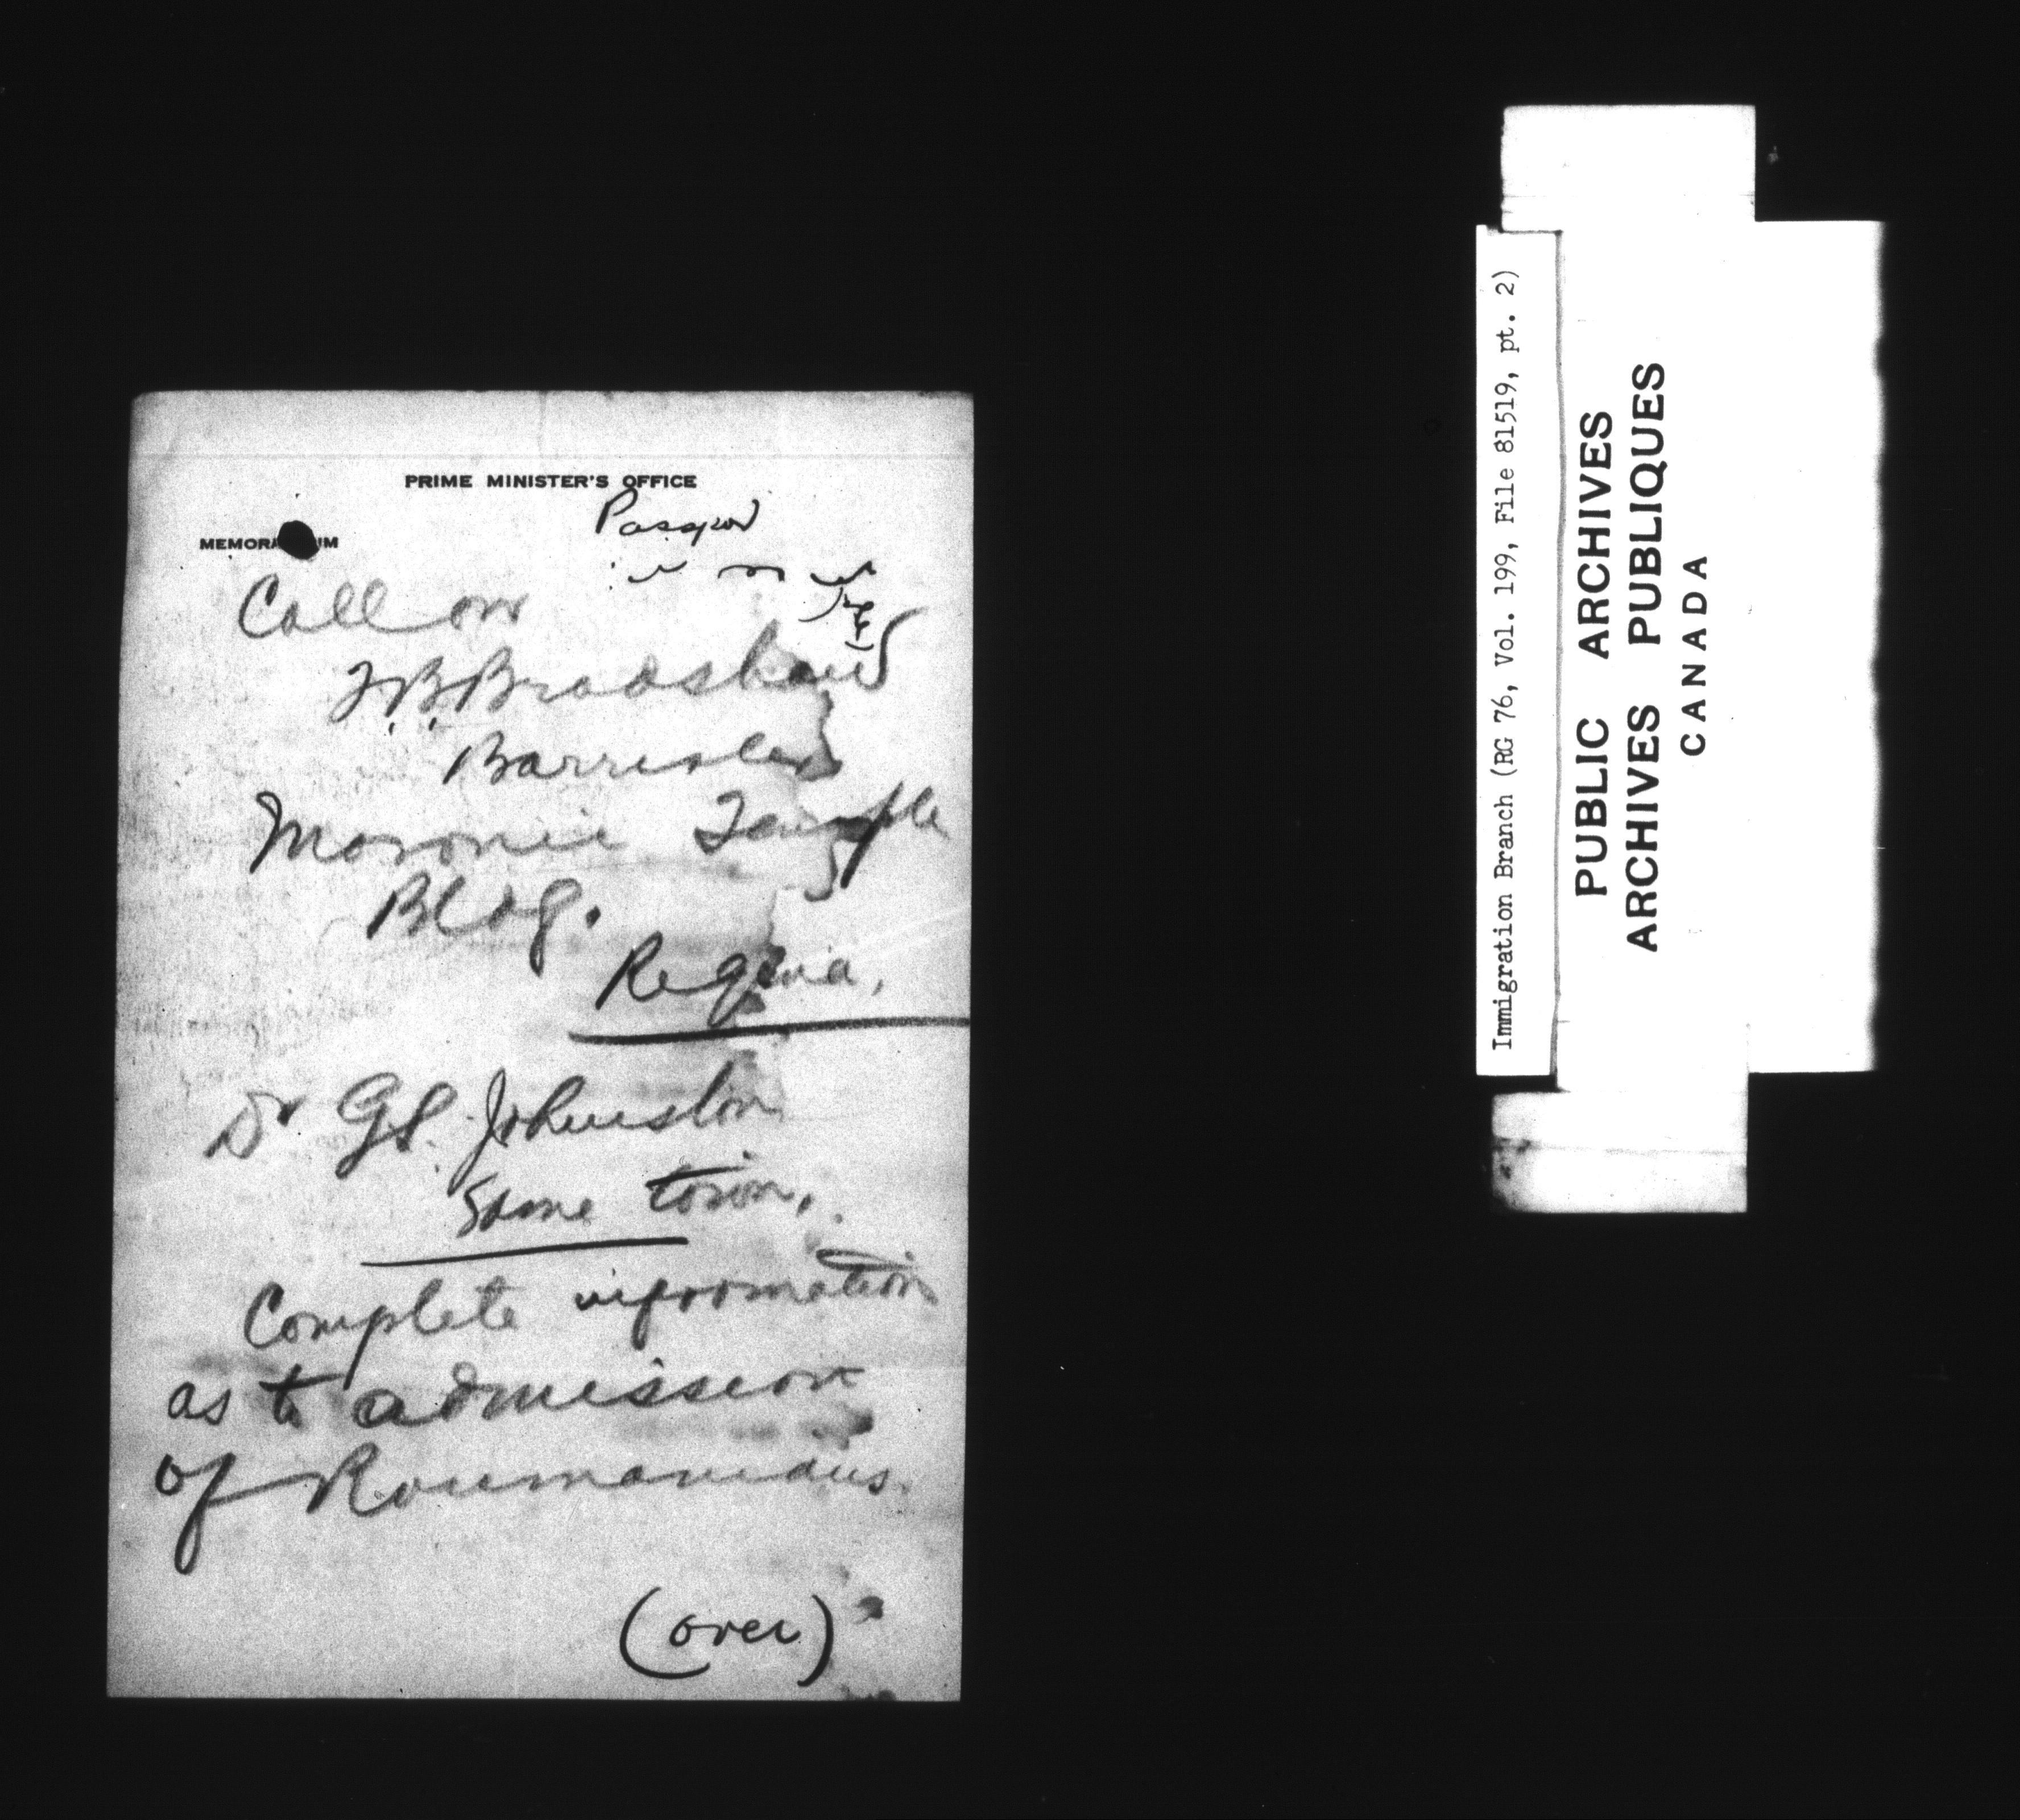 PRIME MINISTER'S OFFICE
MEMORANDUM
Call on
F.B. Bradshaw
Barrister
Masonic Temple
Bldg.
Regina,
Dr G.S. Johnston
Same town,
Complete information
as to admission
of Roumanians.
(over)
Immigration Branch (RG 76, Vol. 199, File 81519, pt. 2)
PUBLIC ARCHIVES
ARCHIVES PUBLIQUES
CANADA